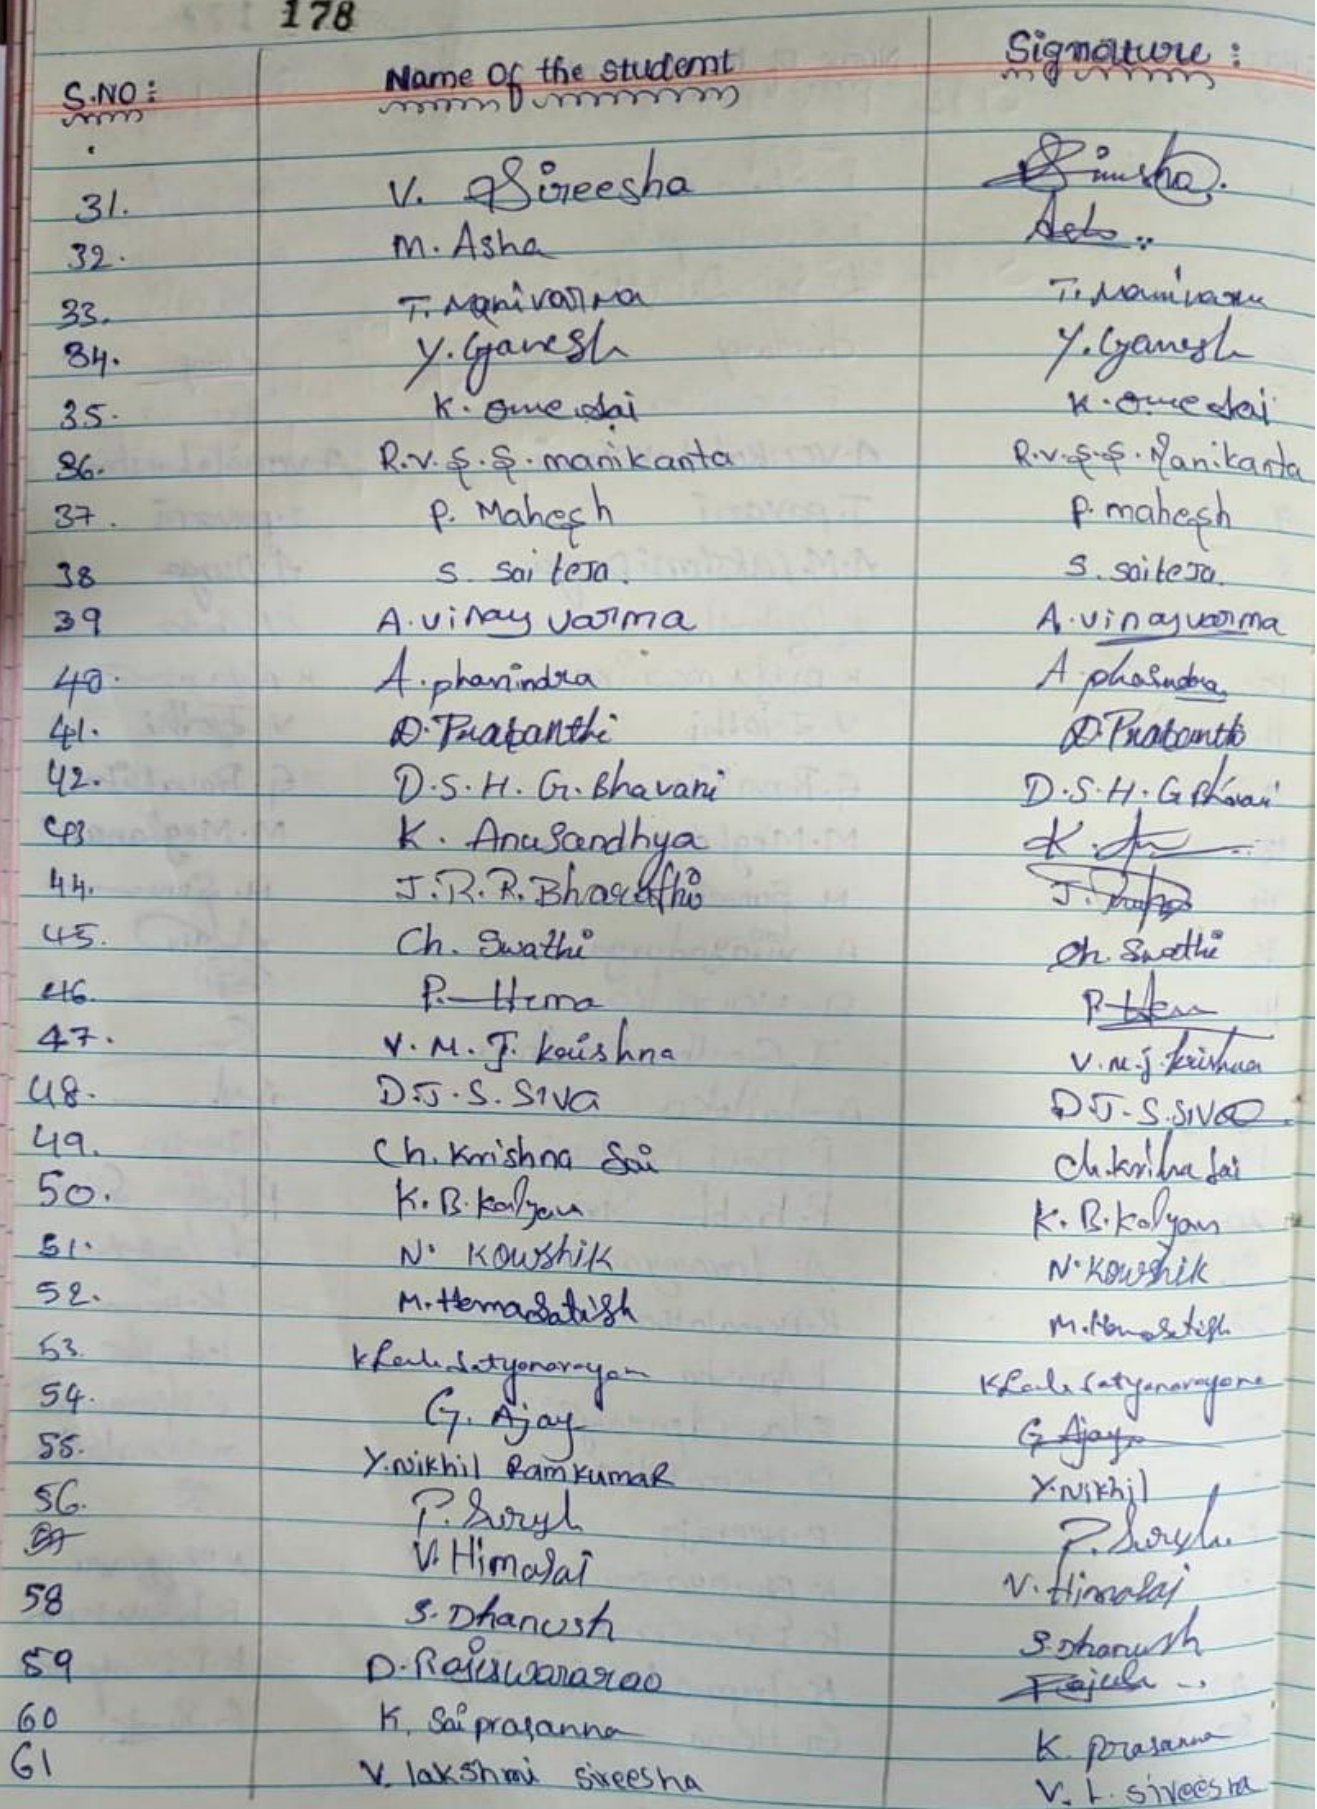 178
S.NO: Name Of the student Signature:
31. V. Sireesha Sirisha.
32. M. Asha Asha
33. T. Manivarma T. Manivarma
34. Y. Ganesh Y. Ganesh
35. K. Ome sai K. Ome sai
36. R.V.S.S. manikanta R.V.S.S. Manikanta
37. P. Mahesh P. mahesh
38 S. Sai teja. S. saiteja.
39 A. vinay varma A. vinay varma
40. A. phanindra A phanindra
41. D. Prabanthi D. Prabanthi
42. D.S.H. G. Bhavani D.S.H. G Bhavani
43 K. Anusandhya K.
44. J.R.R. Bharathi J.
45. Ch. Swathi Ch. Swathi
46. P. Hema P. Hem
47. V. M. J. Krishna V. M. J. Krishna
48. D.J.S. SIVA D.J.S. SIVA
49. Ch. Krishna Sai Ch. Krishna Sai
50. K. B. Kalyan K. B. Kalyan
51. N. Kowshik N. Kowshik
52. M. Hema Satish M. Hema Satish
53. Satyanarayan Satyanarayana
54. G. Ajay G Ajay
55. Y. Nikhil Ramkumar Y. Nikhil
56. P. Surya P. Surya
57 V. Himasai V. Himasai
58 S. Dhanush S. Dhanush
59 D. Rajeswararao
60 K. Sai prasanna K. prasanna
61 V. lakshmi sireesha V. L. sireesha